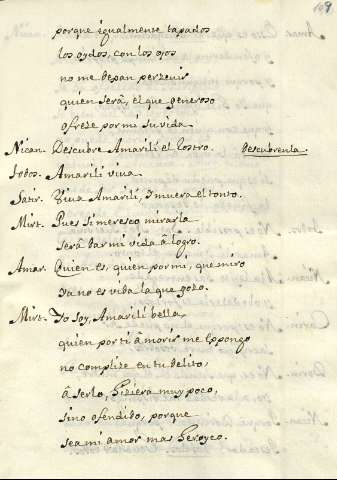 109
porque igualmente tapados
los oydos, con los ojos
no me dexan perzevir
quien será, el que generoso
ofreze por mi su vida.
Nican. Descubre Amarili el Rostro. Descubrenla.
todos. Amarili viva.
Satir. Viva Amarili, y muera el tonto.
Mirt. Pues si meresco mirarla
será dar mi vida â logro.
Amar. Quien es, quien por mi, que miro
ya no es vida la que gozo.
Mirt. Yo soy, Amarili bella,
quien por ti â morir me expongo
no complize en tu delito,
â serlo, hiziera muy poco,
sino ofendido, porque
sea mi amor mas heroyco.